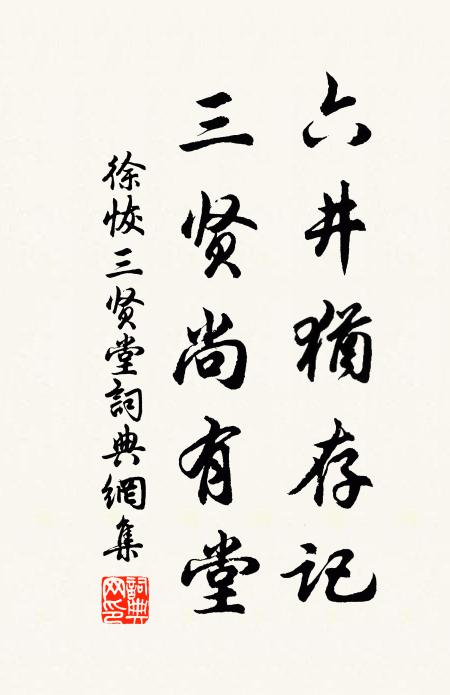 六井猶存记
三贤尚有堂
徐恢三贤堂詞典網集
詞典網印